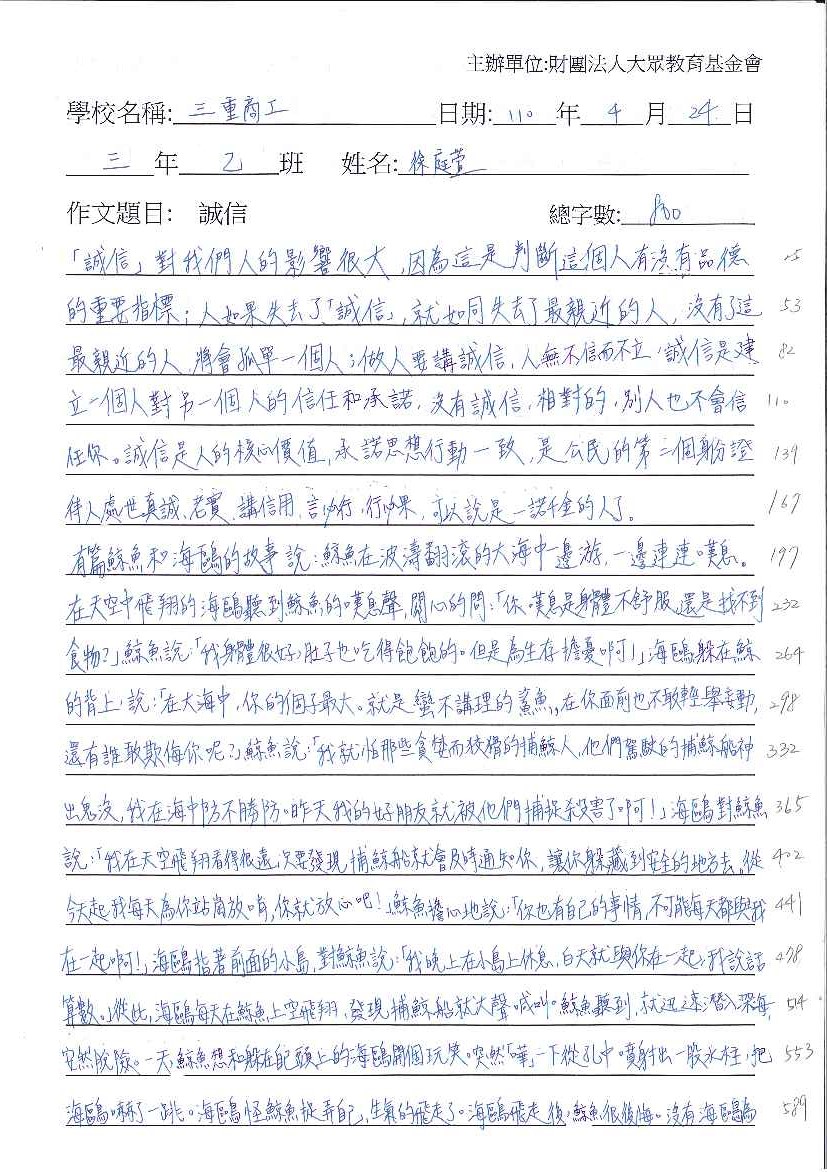 主辦單位:財團法人大眾教育基金會
學校名稱: 三重商工 日期: 110 年 4 月 24 日
三 年 乙 班 姓名: 徐庭萱
作文題目: 誠信 總字數: 800
「誠信」對我們人的影響很大,因為這是判斷這個人有沒有品德 25
的重要指標;人如果失去了「誠信」,就如同失去了最親近的人,沒有了這 53
最親近的人,將會孤單一個人;做人要講誠信,人無不信而不立,誠信是建 82
立一個人對另一個人的信任和承諾,沒有誠信,相對的,別人也不會信 110
任你。誠信是人的核心價值,承諾思想行動一致,是公民的第二個身份證 139
待人處世真誠、老實、講信用,言必行,行必果,可以說是一諾千金的人了。 167
有篇鯨魚和海鷗的故事說:鯨魚在波濤翻滾的大海中一邊游,一邊連連嘆息。 197
在天空中飛翔的海鷗聽到鯨魚的嘆息聲,關心的問:「你嘆息是身體不舒服,還是找不到 232
食物?」鯨魚說:「我身體很好,肚子也吃得飽飽的。但是為生存擔憂啊!」海鷗躲在鯨 264
的背上,說:「在大海中,你的個子最大。就是蠻不講理的鯊魚,在你面前也不敢輕舉妄動, 298
還有誰敢欺侮你呢?」鯨魚說:「我就怕那些貪婪而狡猾的捕鯨人,他們駕駛的捕鯨船神 332
出鬼沒,我在海中防不勝防。昨天我的好朋友就被他們捕捉殺害了啊!」海鷗對鯨魚 365
說:「我在天空飛翔看得很遠,只要發現捕鯨船就會及時通知你,讓你躲藏到安全的地方去。從 402
今天起我每天為你站崗放哨,你就放心吧!」鯨魚擔心地說:「你也有自己的事情,不可能每天都與我 441
在一起啊!」海鷗指著前面的小島,對鯨魚說:「我晚上在小島上休息,白天就與你在一起,我說話 478
算數。」從此,海鷗每天在鯨魚上空飛翔,發現捕鯨船就大聲喊叫。鯨魚聽到,就迅速潛入深海, 514
安然脫險。一天,鯨魚想和躲在自己頭上的海鷗開個玩笑。突然「嘩」一下從孔中噴射出一股水柱,把 553
海鷗嚇了一跳。海鷗怪鯨魚捉弄自己,生氣的飛走了。海鷗飛走後,鯨魚很後悔。沒有海鷗為 589